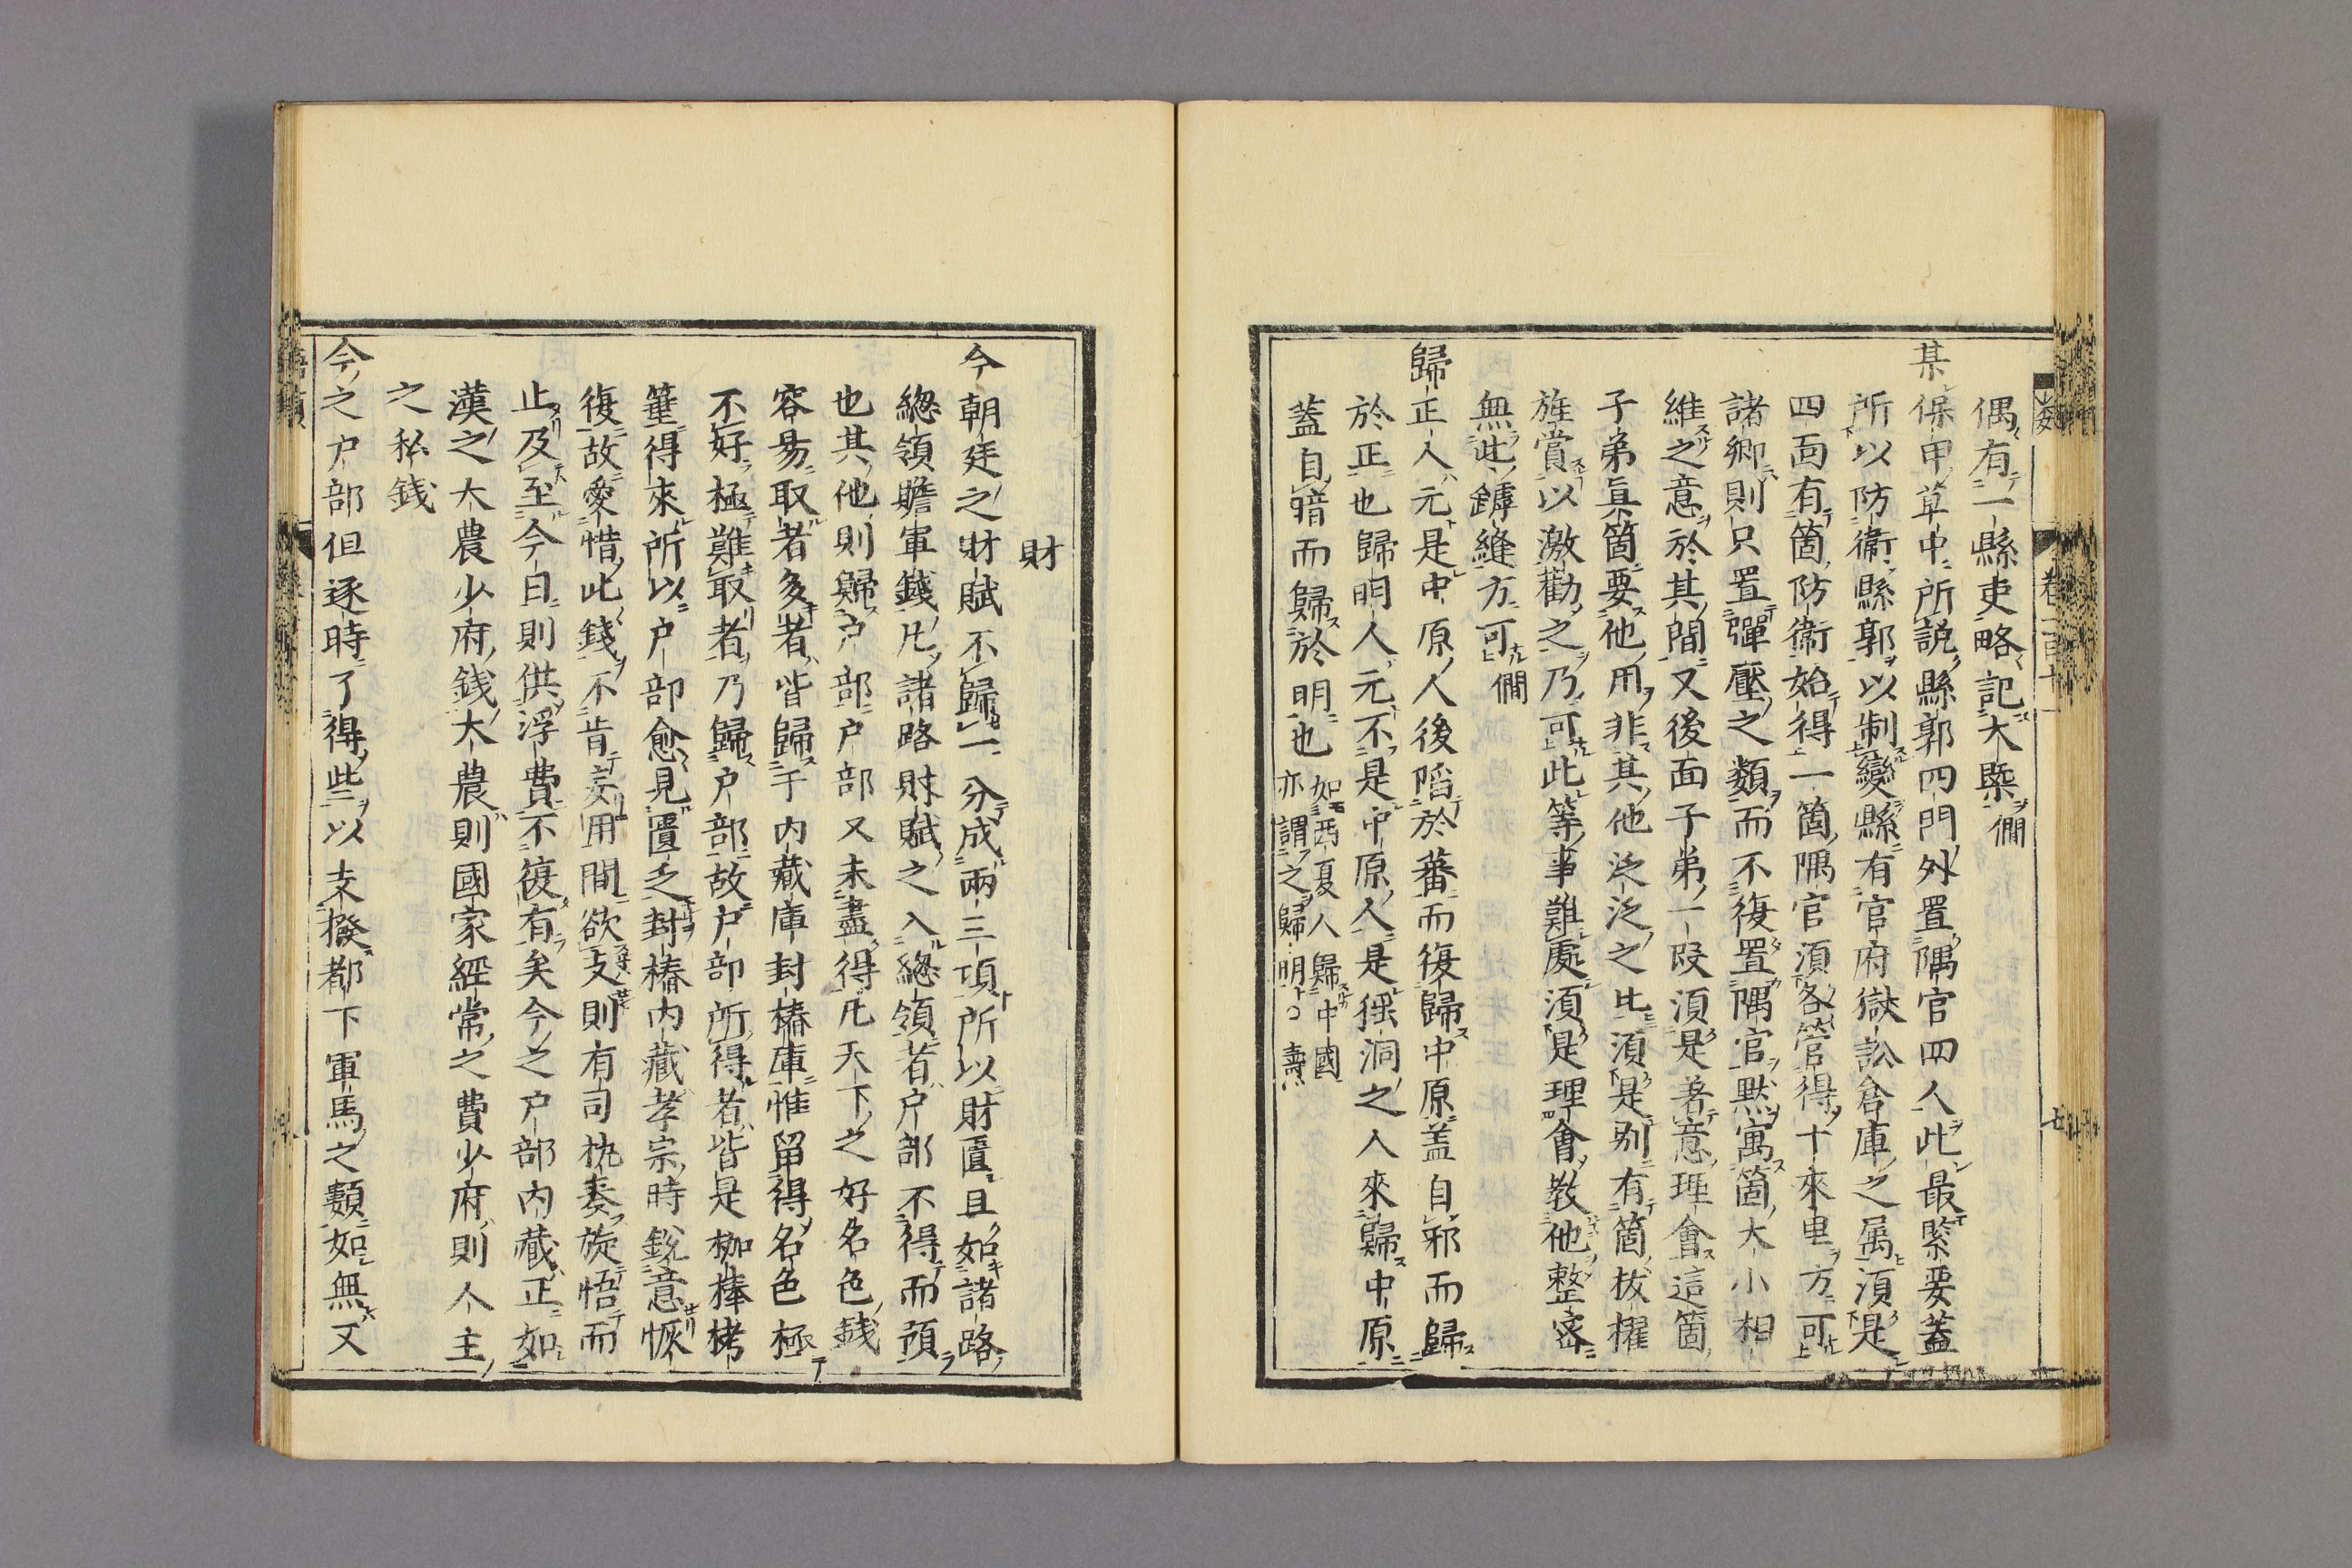 偶有一縣吏略記大槩僩
某保甲草中所說縣郭四門外置隅官四人此最緊要蓋
所以防衞縣郭以制變縣有官府獄訟倉庫之屬須是
四面有箇防衞始得一箇隅官須各管得十來里方可
諸鄉則只置彈壓之類而不復置隅官默寓箇大小相
維之意於其間又後面子弟一段須是著意理會這箇
子弟眞箇要他用非其他泛泛之比須是別有箇拔擢
旌賞以激勸之乃可此等事難處須是理會敎他整密
無此罅縫方可僩
歸正人元是中原人後陷於蕃而復歸中原盖自邪而歸
於正也歸明人元不是中原人是猺洞之人來歸中原
蓋自暗而歸於明也如西夏人歸中國
亦謂之歸明○壽
財
今朝廷之財賦不歸一分成兩三項所以財匱且如諸路
緫領贍軍錢凡諸路財賦之入緫領者户部不得而預
也其他則歸户部户部又未盡得凡天下之好名色錢
容易取者多者皆歸于内藏庫封樁庫惟留得名色極
不好極難取者乃歸户部故户部所得者皆是枷棒栲
箠得來所以户部愈見匱乏封樁内藏孝宗時銳意恢
復故愛惜此錢不肯妄用間欲支則有司執奏旋悟而
止及至今日則供浮費不復有矣今之户部内藏正如
漢之大農少府錢大農則國家經常之費少府則人主
之私錢
今之户部但逐時了得些以支撥都下軍馬之類如無又